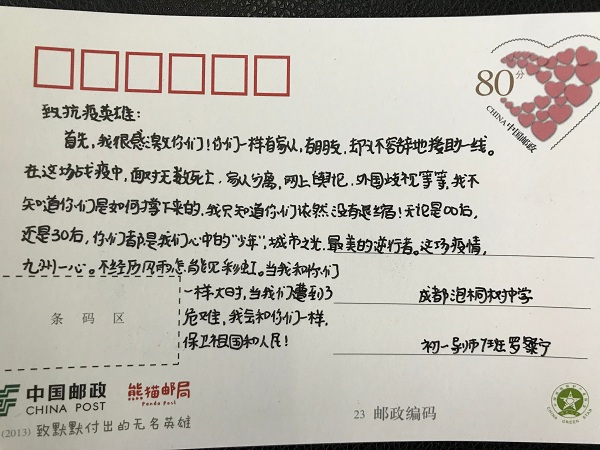 80分
CHINA 中国邮政
致抗疫英雄：
首先，我很感激你们！你们一样有家人，有朋友，却义不容辞地援助一线。
在这场战疫中，面对无数死亡，家人分离，网上舆论，外国歧视等等，我不
知道你们是如何撑下来的，我只知道你们依然没有退缩！无论是00后，
还是30后，你们都是我们心中的“少年”，城市之光，最美的逆行者。这场疫情，
九州一心。不经历风雨怎能见彩虹。当我和你们
一样大时，当我们遭到了
危难，我会和你们一样，
保卫祖国和人民！
条码区
成都泡桐树中学
初一 班罗粲宁
中国邮政
CHINA POST
熊猫邮局
Panda Post
(2013) 致默默付出的无名英雄
23 邮政编码
CHINA GREEN STAR